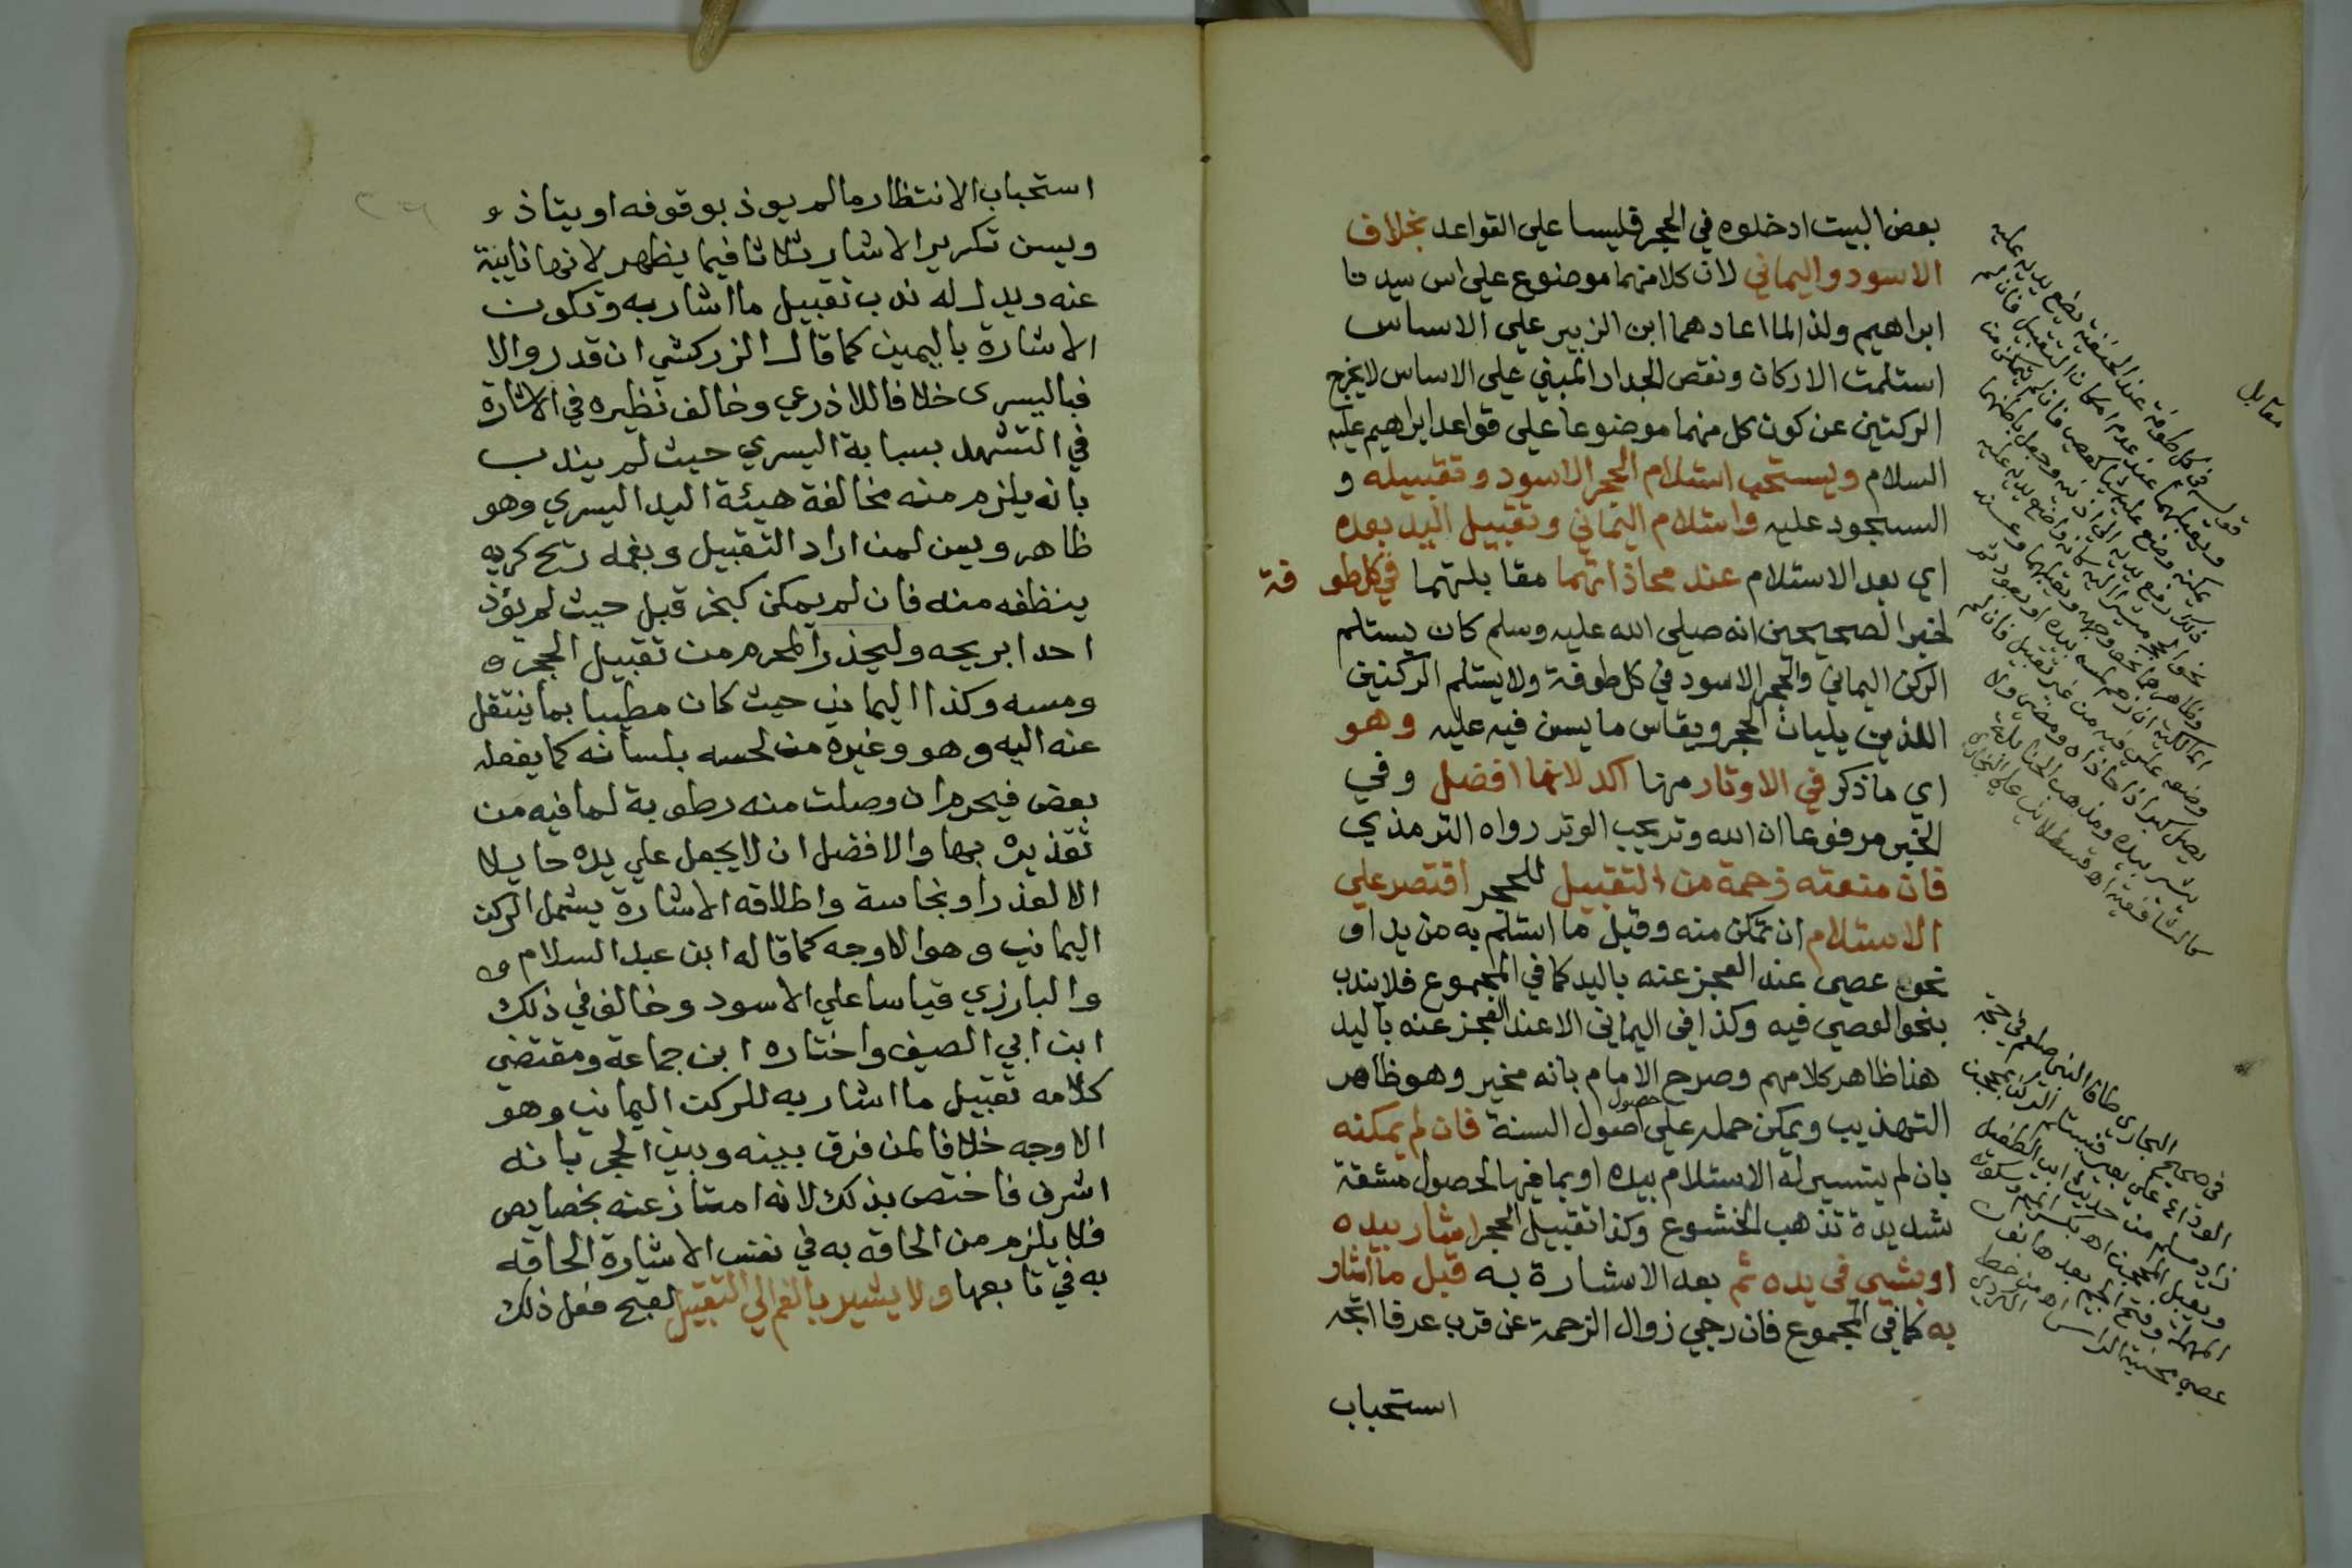 بعض البيت ادخلوه في الحجر فليسا على القواعد بخلاف
الاسود واليماني لان كلا منهما موضوع على اس سيدنا
ابراهيم ولذا لما اعادهما ابن الزبير على الاساس
استلمت الاركان ونقص الجدار المبني على الاساس لا يخرج
الركنين عن كون كل منهما موضوعا على قواعد ابراهيم عليه
السلام ويستحب استلام الحجر الاسود وتقبيله و
السجود عليه واستلام اليماني وتقبيل اليد بعده
اي بعد الاستلام عند محاذاتهما مقابلتهما في كل طوفة
لخبر الصحيحين انه صلى الله عليه وسلم كان يستلم
الركن اليماني والحجر الاسود في كل طوفة ولا يستلم الركنين
اللذين يليان الحجر ويقاس ما يسن فيه عليه وهو
اي ما ذكر في الاوتار منها اكد لانها افضل وفي
الخبر مرفوعا ان الله وتر يحب الوتر رواه الترمذي
فان منعته زحمة من التقبيل للحجر اقتصر على
الاستلام ان تمكن منه وقبل ما استلم به من يد او
نحو عصى عند العجز عنه باليد كما في المجموع فلا يندب
بنحو العصى فيه وكذا في اليماني الا عند العجز عنه باليد
هنا ظاهر كلامهم وصرح الامام بانه مخير وهو ظاهر
التهذيب ويمكن حمله على حصول اصول السنة فان لم يمكنه
بان لم يتيسر له الاستلام بيده او بما فيها لحصول مشقة
شديدة تذهب الخشوع وكذا تقبيل الحجر اشار بيده
او بشيء في يده ثم بعد الاشارة به قبل ما اشار
به كما في المجموع فان رجي زوال الزحمة عن قرب عرفا اتجه
استحباب
مقابل
قوله في كل طوفة عند الحنفية يضع يديه عليه
ويقبلهما عند عدم امكان التقبيل فان لم
في صحيح البخاري طاف النبي صلعم في حجة
الوداع على بعير فيستلم الركن بمحجن
زاد مسلم من حديث ابي الطفيل
ويقبل المحجن اه بكسر الميم وسكون
المهملة وفتح الجيم بعدها نون
عصى محنية الراس اه من خط الكردي
استحباب الانتظار ما لم يوذ بوقوفه او يتاذ و
ويسن تكرير الاشارة ثلاثا فيما يظهر لانها نايبة
عنه ويدل له ندب تقبيل ما اشار به وتكون
الاشارة باليمين كما قال الزركشي ان قدر والا
فباليسرى خلافا للاذرعي وخالف نظيره في الاشارة
في التشهد بسبابة اليسري حيث لم يندب
بانه يلزم منه مخالفة هيئة اليد اليسري وهو
ظاهر ويسن لمن اراد التقبيل وبفمه ريح كريه
ينظفه منه فان لم يمكن كبخر قبل حيث لم يؤذ
احدا بريحه وليحذر المحرم من تقبيل الحجر و
ومسه وكذا اليماني حيث كان مطيبا بما ينتقل
عنه اليه وهو وغيره من لحسه بلسانه كما يفعله
بعض فيحرم ان وصلت منه رطوبة لما فيه من
تقذيره بها والافضل ان لا يجعل على يده حايلا
الا لعذر او نجاسة واطلاقه الاشارة يشمل الركن
اليماني وهو الاوجه كما قاله ابن عبد السلام و
والبارزي قياسا على الاسود وخالف في ذلك
ابن ابي الصيف واختاره ابن جماعة ومقتضى
كلامه تقبيل ما اشار به للركن اليماني وهو
الاوجه خلافا لمن فرق بينه وبين الحجر بانه
اشرف فاختص بذلك لانه امتاز عنه بخصايص
فلا يلزم من الحاقه به في نفس الاشارة الحاقه
به في تابعها ولا يشير بالفم الي التقبيل لقبح فعل ذلك